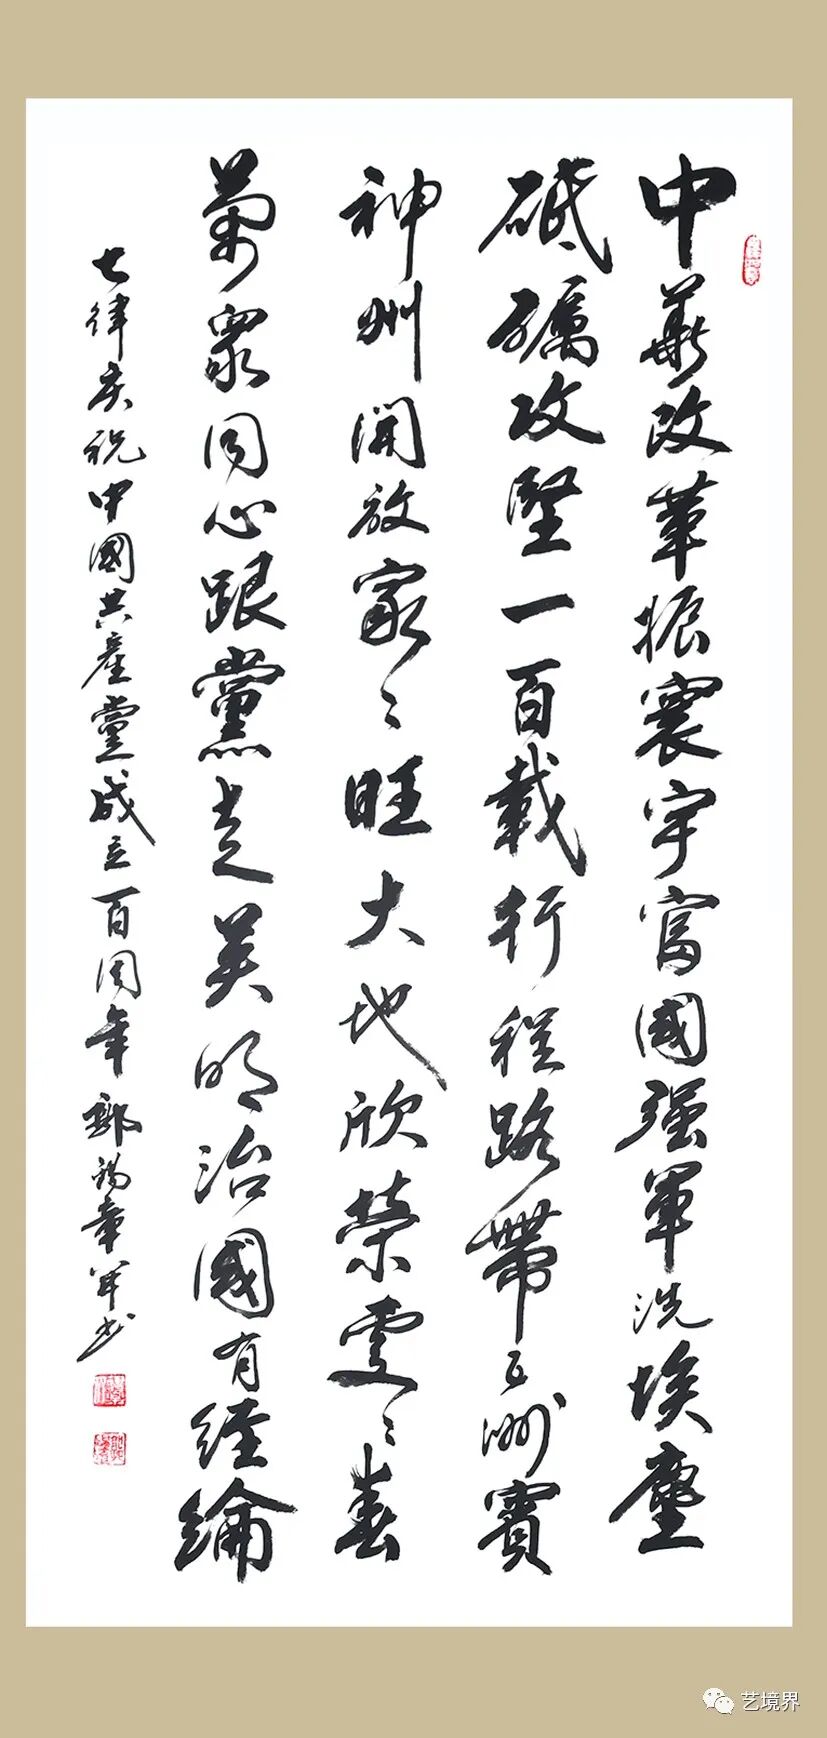 中華改革振寰宇富國强軍洗埃塵
砥礪攻堅一百載行程路帶五洲賓
神州開放家〻旺大地欣榮處〻春
萬衆同心跟黨走英明治國有經綸
七律庆祝中國共產黨成立一百周年 鄭錫章并书
艺境界